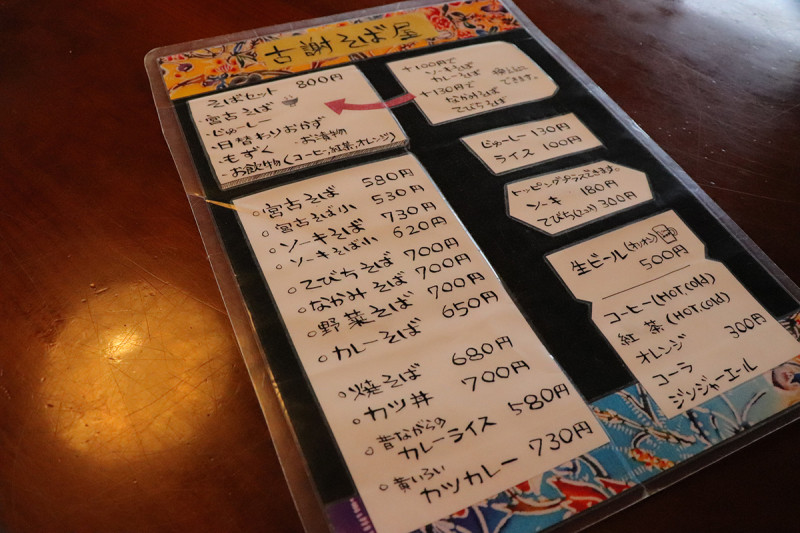 古謝そば屋
そばセット 800円
・宮古そば
・じゅーしー
・日替わりおかず
・もずく ・お漬物
・お飲物(コーヒー,紅茶,オレンジ)
+100円で
ソーキそば
カレーそば
+130円で
なかみそば
てびちそば
できます。
じゅーしー 130円
ライス 100円
トッピングプラスできます。
ソーキ 180円
てびち(2コ) 300円
生ビール(オリオン)
500円
コーヒー(HOT,cold)
紅茶(HOT,cold)
オレンジ 300円
コーラ
ジンジャーエール
○宮古そば 580円
○宮古そば小 530円
○ソーキそば 730円
○ソーキそば小 620円
○てびちそば 700円
○なかみそば 700円
○野菜そば 700円
○カレーそば 650円
○焼そば 680円
○カツ丼 700円
○昔ながらの
カレーライス 580円
○黄いろい
カツカレー 730円